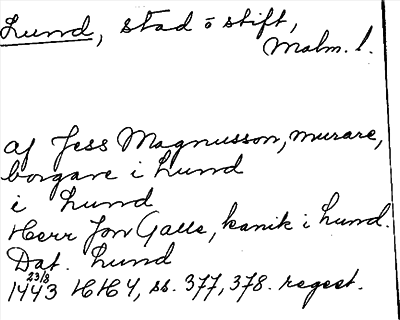 Lund, stad o stift,
Malm. l.
af Jess Magnusson, murare,
borgare i Lund
i Lund
Herr Jon Galle, kanik i Lund.
Dat. Lund
23/8
1443 HH 4, ss. 377, 378. regest.